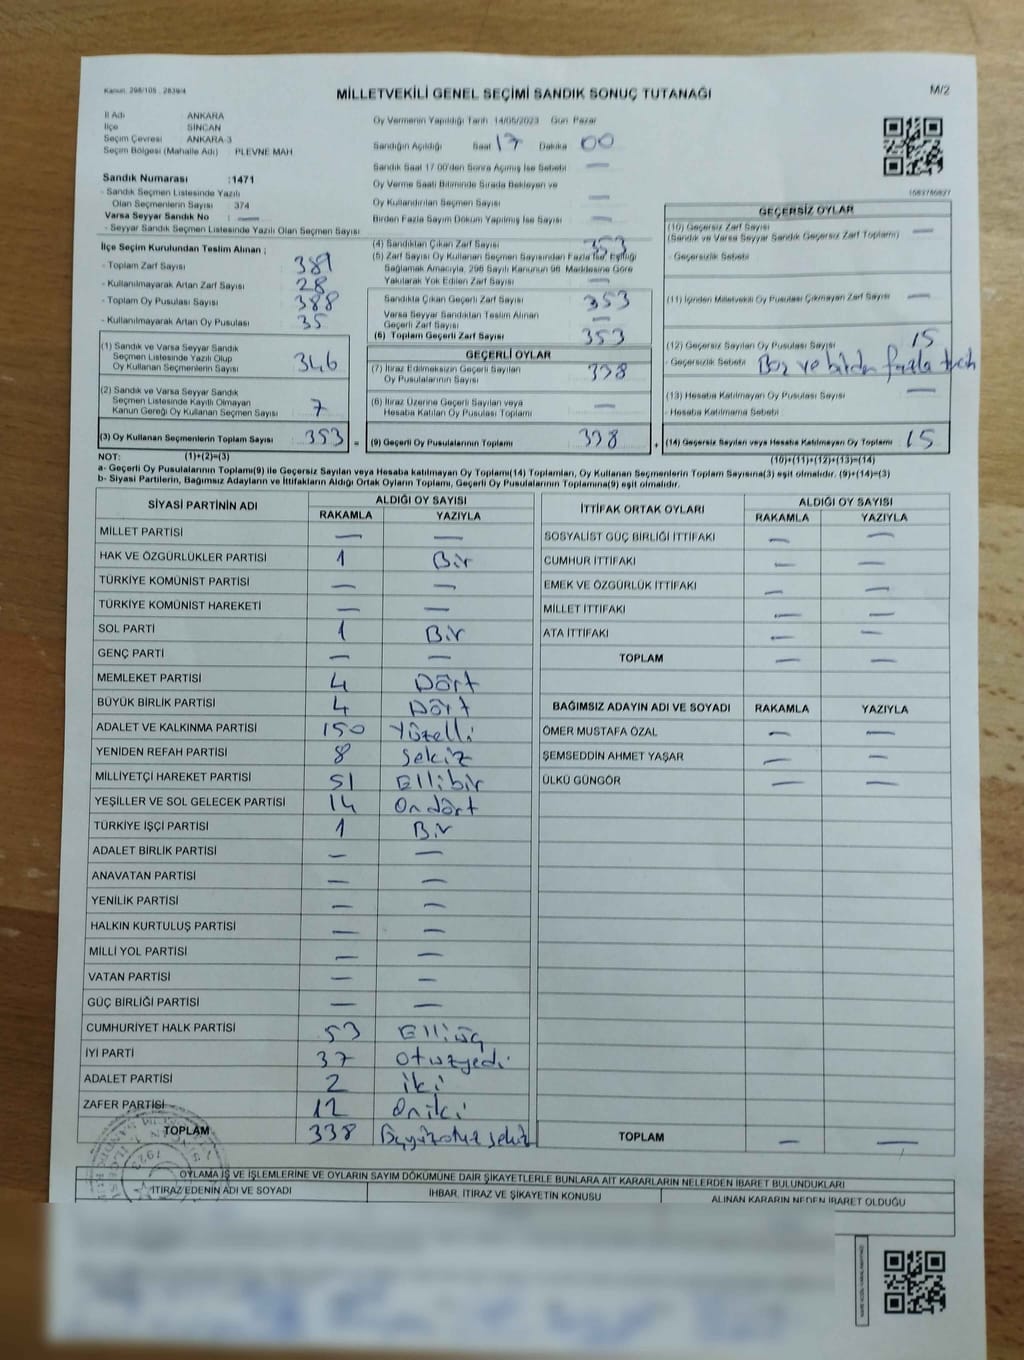 Kanun: 298/105 . 2839/4
MİLLETVEKİLİ GENEL SEÇİMİ SANDIK SONUÇ TUTANAĞI
M/2
İl Adı ANKARA
İlçe SİNCAN
Seçim Çevresi ANKARA-3
Seçim Bölgesi (Mahalle Adı) PLEVNE MAH
Sandık Numarası :1471
- Sandık Seçmen Listesinde Yazılı
Olan Seçmenlerin Sayısı 374
Varsa Seyyar Sandık No : —
- Seyyar Sandık Seçmen Listesinde Yazılı Olan Seçmen Sayısı
Oy Vermenin Yapıldığı Tarih 14/05/2023 Gün Pazar
Sandığın Açıldığı Saat 17 Dakika 00
Sandık Saat 17 00'den Sonra Açılmış İse Sebebi —
Oy Verme Saati Bitiminde Sırada Bekleyen ve
Oy Kullandırılan Seçmen Sayısı —
Birden Fazla Sayım Döküm Yapılmış İse Sayısı —
1583756827
İlçe Seçim Kurulundan Teslim Alınan ;
- Toplam Zarf Sayısı 381
- Kullanılmayarak Artan Zarf Sayısı 28
- Toplam Oy Pusulası Sayısı 388
- Kullanılmayarak Artan Oy Pusulası 35
(1) Sandık ve Varsa Seyyar Sandık
Seçmen Listesinde Yazılı Olup
Oy Kullanan Seçmenlerin Sayısı 346
(2) Sandık ve Varsa Seyyar Sandık
Seçmen Listesinde Kayıtlı Olmayan
Kanun Gereği Oy Kullanan Seçmen Sayısı 7
(3) Oy Kullanan Seçmenlerin Toplam Sayısı 353 =
(4) Sandıktan Çıkan Zarf Sayısı 353
(5) Zarf Sayısı Oy Kullanan Seçmen Sayısından Fazla İse, Eşitliği
Sağlamak Amacıyla, 298 Sayılı Kanunun 98. Maddesine Göre
Yakılarak Yok Edilen Zarf Sayısı —
Sandıkta Çıkan Geçerli Zarf Sayısı 353
Varsa Seyyar Sandıktan Teslim Alınan
Geçerli Zarf Sayısı —
(6) Toplam Geçerli Zarf Sayısı 353
GEÇERLİ OYLAR
(7) İtiraz Edilmeksizin Geçerli Sayılan
Oy Pusulalarının Sayısı 338
(8) İtiraz Üzerine Geçerli Sayılan veya
Hesaba Katılan Oy Pusulası Toplamı —
(9) Geçerli Oy Pusulalarının Toplamı 338 +
GEÇERSİZ OYLAR
(10) Geçersiz Zarf Sayısı
(Sandık ve Varsa Seyyar Sandık Geçersiz Zarf Toplamı) —
- Geçersizlik Sebebi
(11) İçinden Milletvekili Oy Pusulası Çıkmayan Zarf Sayısı —
(12) Geçersiz Sayılan Oy Pusulası Sayısı 15
- Geçersizlik Sebebi Boş ve birden fazla
(13) Hesaba Katılmayan Oy Pusulası Sayısı —
- Hesaba Katılmama Sebebi
(14) Geçersiz Sayılan veya Hesaba Katılmayan Oy Toplamı 15
NOT: (1)+(2)=(3) (10)+(11)+(12)+(13)=(14)
a- Geçerli Oy Pusulalarının Toplamı(9) ile Geçersiz Sayılan veya Hesaba katılmayan Oy Toplamı(14) Toplamları, Oy Kullanan Seçmenlerin Toplam Sayısına(3) eşit olmalıdır. (9)+(14)=(3)
b- Siyasi Partilerin, Bağımsız Adayların ve İttifakların Aldığı Ortak Oyların Toplamı, Geçerli Oy Pusulalarının Toplamına(9) eşit olmalıdır.
SİYASİ PARTİNİN ADI ALDIĞI OY SAYISI
RAKAMLA YAZIYLA
MİLLET PARTİSİ — —
HAK VE ÖZGÜRLÜKLER PARTİSİ 1 Bir
TÜRKİYE KOMÜNİST PARTİSİ — —
TÜRKİYE KOMÜNİST HAREKETİ — —
SOL PARTİ 1 Bir
GENÇ PARTİ — —
MEMLEKET PARTİSİ 4 Dört
BÜYÜK BİRLİK PARTİSİ 4 Dört
ADALET VE KALKINMA PARTİSİ 150 Yüzelli
YENİDEN REFAH PARTİSİ 8 Sekiz
MİLLİYETÇİ HAREKET PARTİSİ 51 Ellibir
YEŞİLLER VE SOL GELECEK PARTİSİ 14 Ondört
TÜRKİYE İŞÇİ PARTİSİ 1 Bir
ADALET BİRLİK PARTİSİ — —
ANAVATAN PARTİSİ — —
YENİLİK PARTİSİ — —
HALKIN KURTULUŞ PARTİSİ — —
MİLLİ YOL PARTİSİ — —
VATAN PARTİSİ — —
GÜÇ BİRLİĞİ PARTİSİ — —
CUMHURİYET HALK PARTİSİ 53 Elliüç
İYİ PARTİ 37 Otuzyedi
ADALET PARTİSİ 2 iki
ZAFER PARTİSİ 12 Oniki
TOPLAM 338 Üçyüzotuzsekiz
İTTİFAK ORTAK OYLARI ALDIĞI OY SAYISI
RAKAMLA YAZIYLA
SOSYALİST GÜÇ BİRLİĞİ İTTİFAKI — —
CUMHUR İTTİFAKI — —
EMEK VE ÖZGÜRLÜK İTTİFAKI — —
MİLLET İTTİFAKI — —
ATA İTTİFAKI — —
TOPLAM — —
BAĞIMSIZ ADAYIN ADI VE SOYADI RAKAMLA YAZIYLA
ÖMER MUSTAFA ÖZAL — —
ŞEMSEDDİN AHMET YAŞAR — —
ÜLKÜ GÜNGÖR — —
TOPLAM — —
OYLAMA İŞ VE İŞLEMLERİNE VE OYLARIN SAYIM DÖKÜMÜNE DAİR ŞİKAYETLERLE BUNLARA AİT KARARLARIN NELERDEN İBARET BULUNDUKLARI
İTİRAZ EDENİN ADI VE SOYADI İHBAR, İTİRAZ VE ŞİKAYETİN KONUSU ALINAN KARARIN NEDEN İBARET OLDUĞU